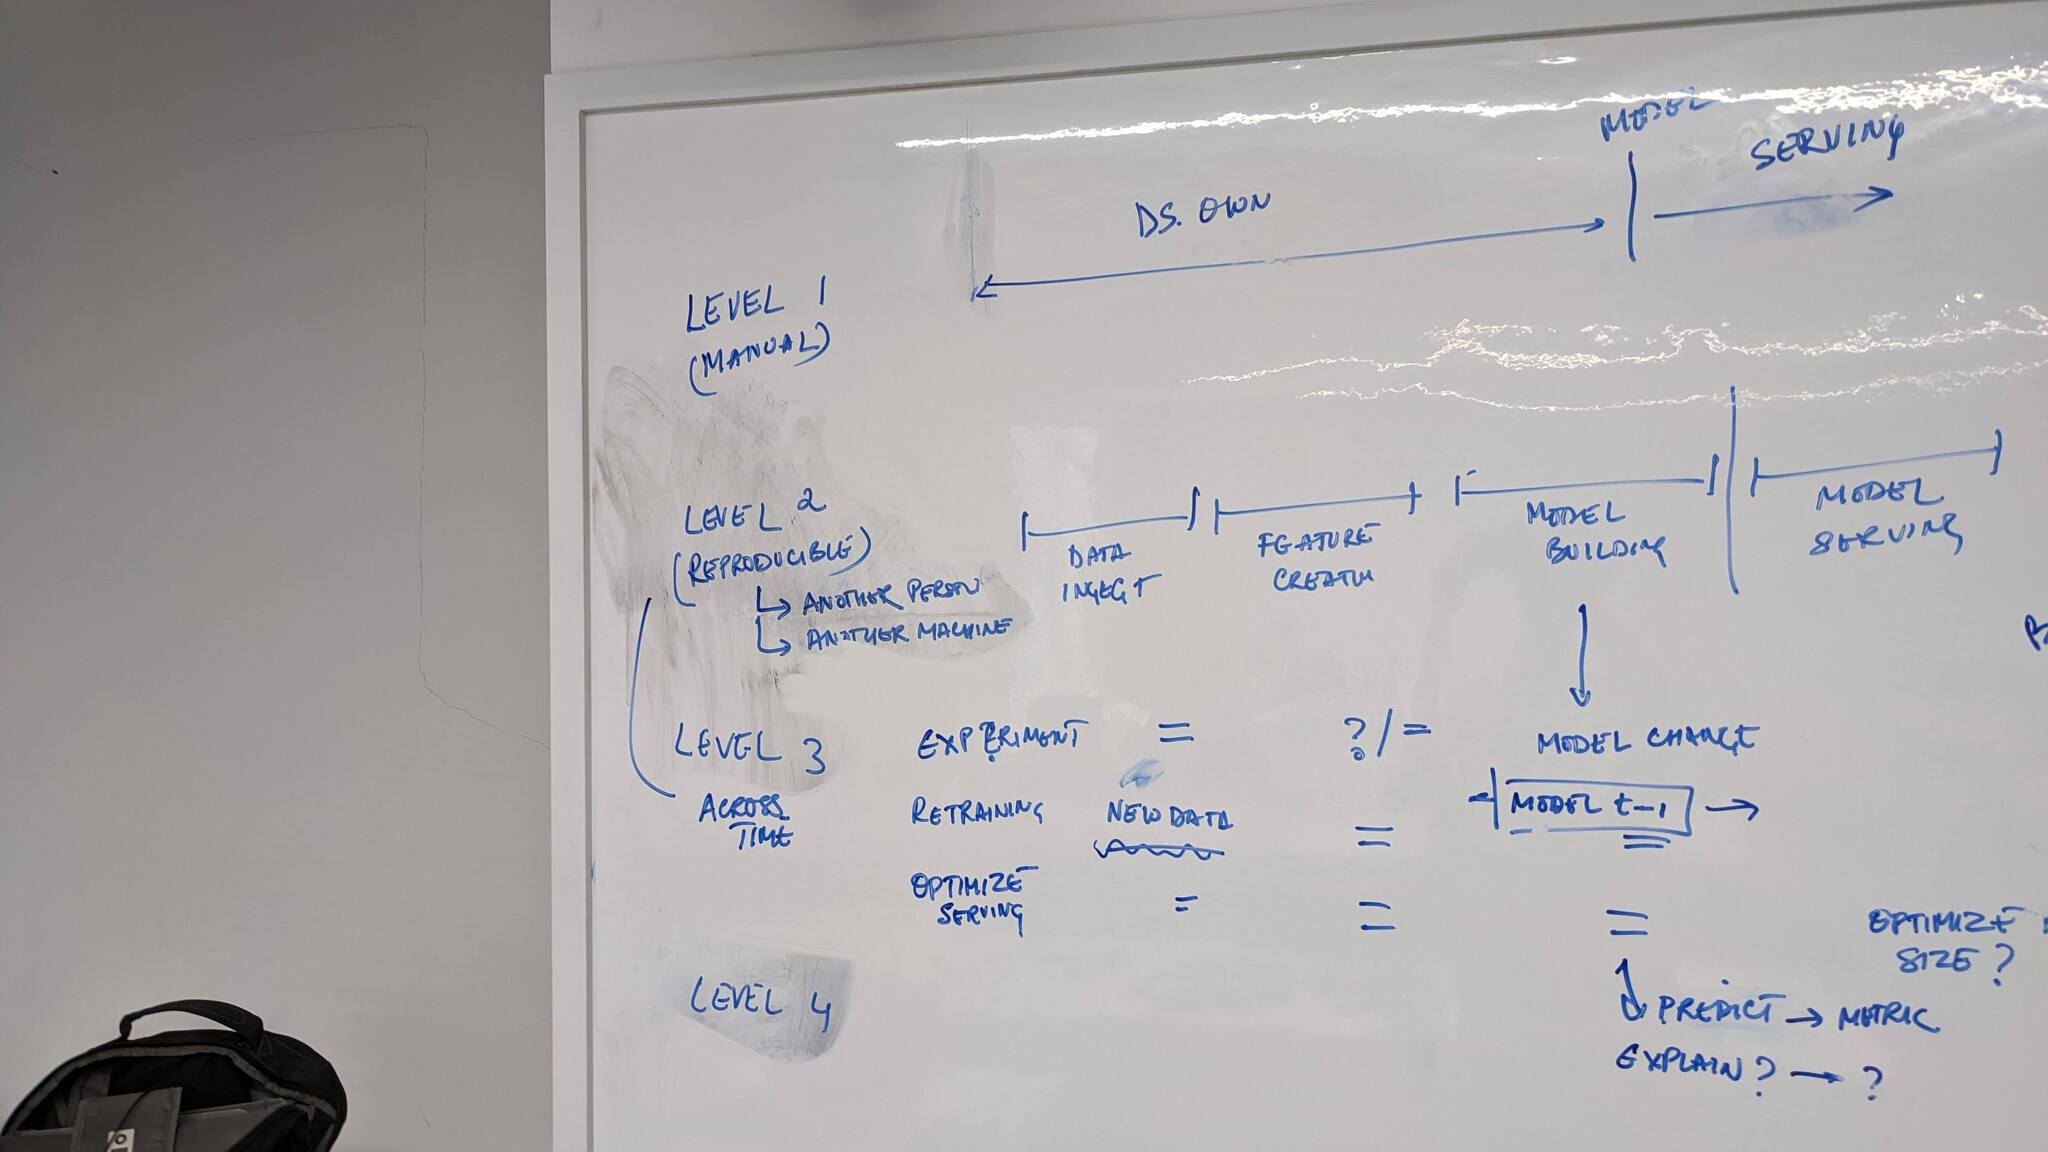 MODEL
SERVING
DS. OWN
LEVEL 1
(MANUAL)
LEVEL 2
(REPRODUCIBLE)
↳ ANOTHER PERSON
↳ ANOTHER MACHINE
DATA
INGEST
FEATURE
CREATION
MODEL
BUILDING
MODEL
SERVING
LEVEL 3
ACROSS
TIME
EXPERIMENT = ?/= MODEL CHANGE
RETRAINING NEW DATA = MODEL t-1 →
OPTIMIZE
SERVING = = =
OPTIMIZE
SIZE?
PREDICT → METRIC
EXPLAIN? → ?
LEVEL 4